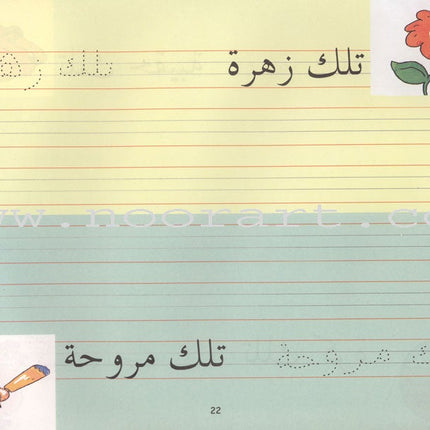 تلك زهرة تلك زهـ
www.noorart.co
تلك مروحة
ك مروحة
22